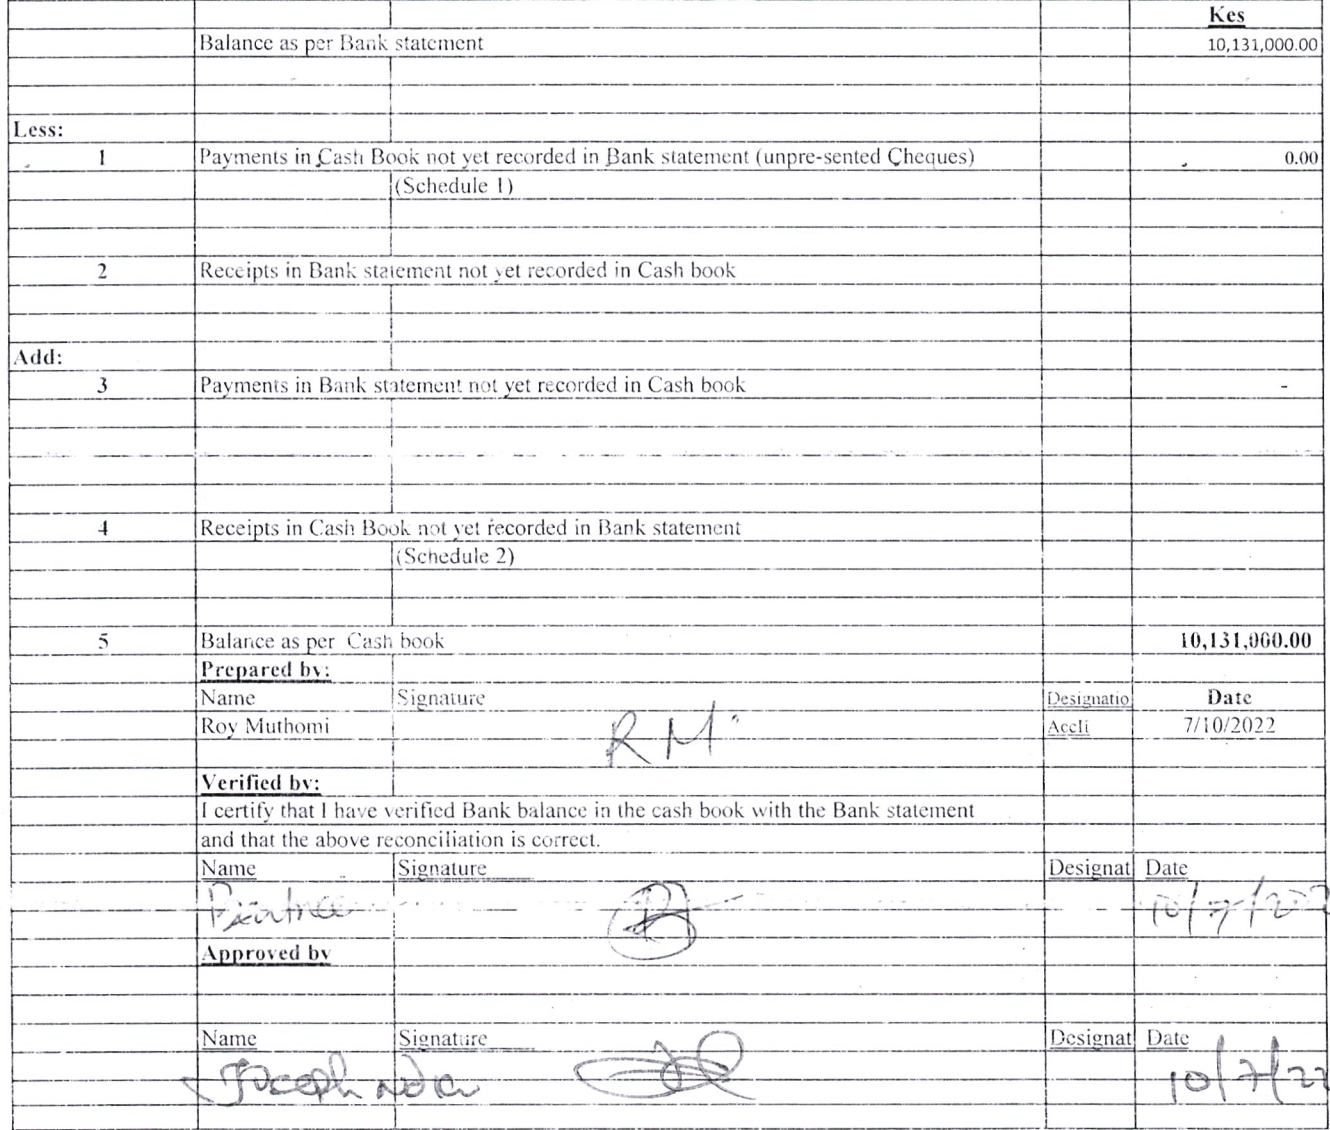 Kes
Balance as per Bank statement 10,131,000.00
Less:
1 Payments in Cash Book not yet recorded in Bank statement (unpre-sented Cheques) 0.00
(Schedule 1)
2 Receipts in Bank statement not yet recorded in Cash book
Add:
3 Payments in Bank statement not yet recorded in Cash book -
4 Receipts in Cash Book not yet recorded in Bank statement
(Schedule 2)
5 Balance as per Cash book 10,131,000.00
Prepared by:
Name Signature Designatio Date
Roy Muthomi RM. 7/10/2022
Verified by:
I certify that I have verified Bank balance in the cash book with the Bank statement
and that the above reconciliation is correct.
Name Signature Designat Date
Beatrice 10/7/202
Approved by
Name Signature Designat Date
Joseph 10/7/22